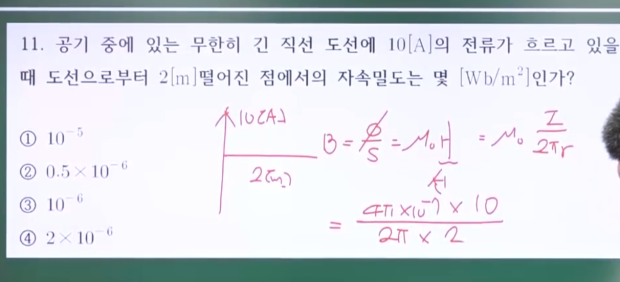 11. 공기 중에 있는 무한히 긴 직선 도선에 10[A]의 전류가 흐르고 있을
때 도선으로부터 2[m]떨어진 점에서의 자속밀도는 몇 [Wb/m²]인가?
① 10⁻⁵
② 0.5×10⁻⁶
③ 10⁻⁶
④ 2×10⁻⁶
10[A]
2[m]
B = φ/S = μ₀H = μ₀ I/2πr
= 4π×10⁻⁷ × 10 / 2π × 2